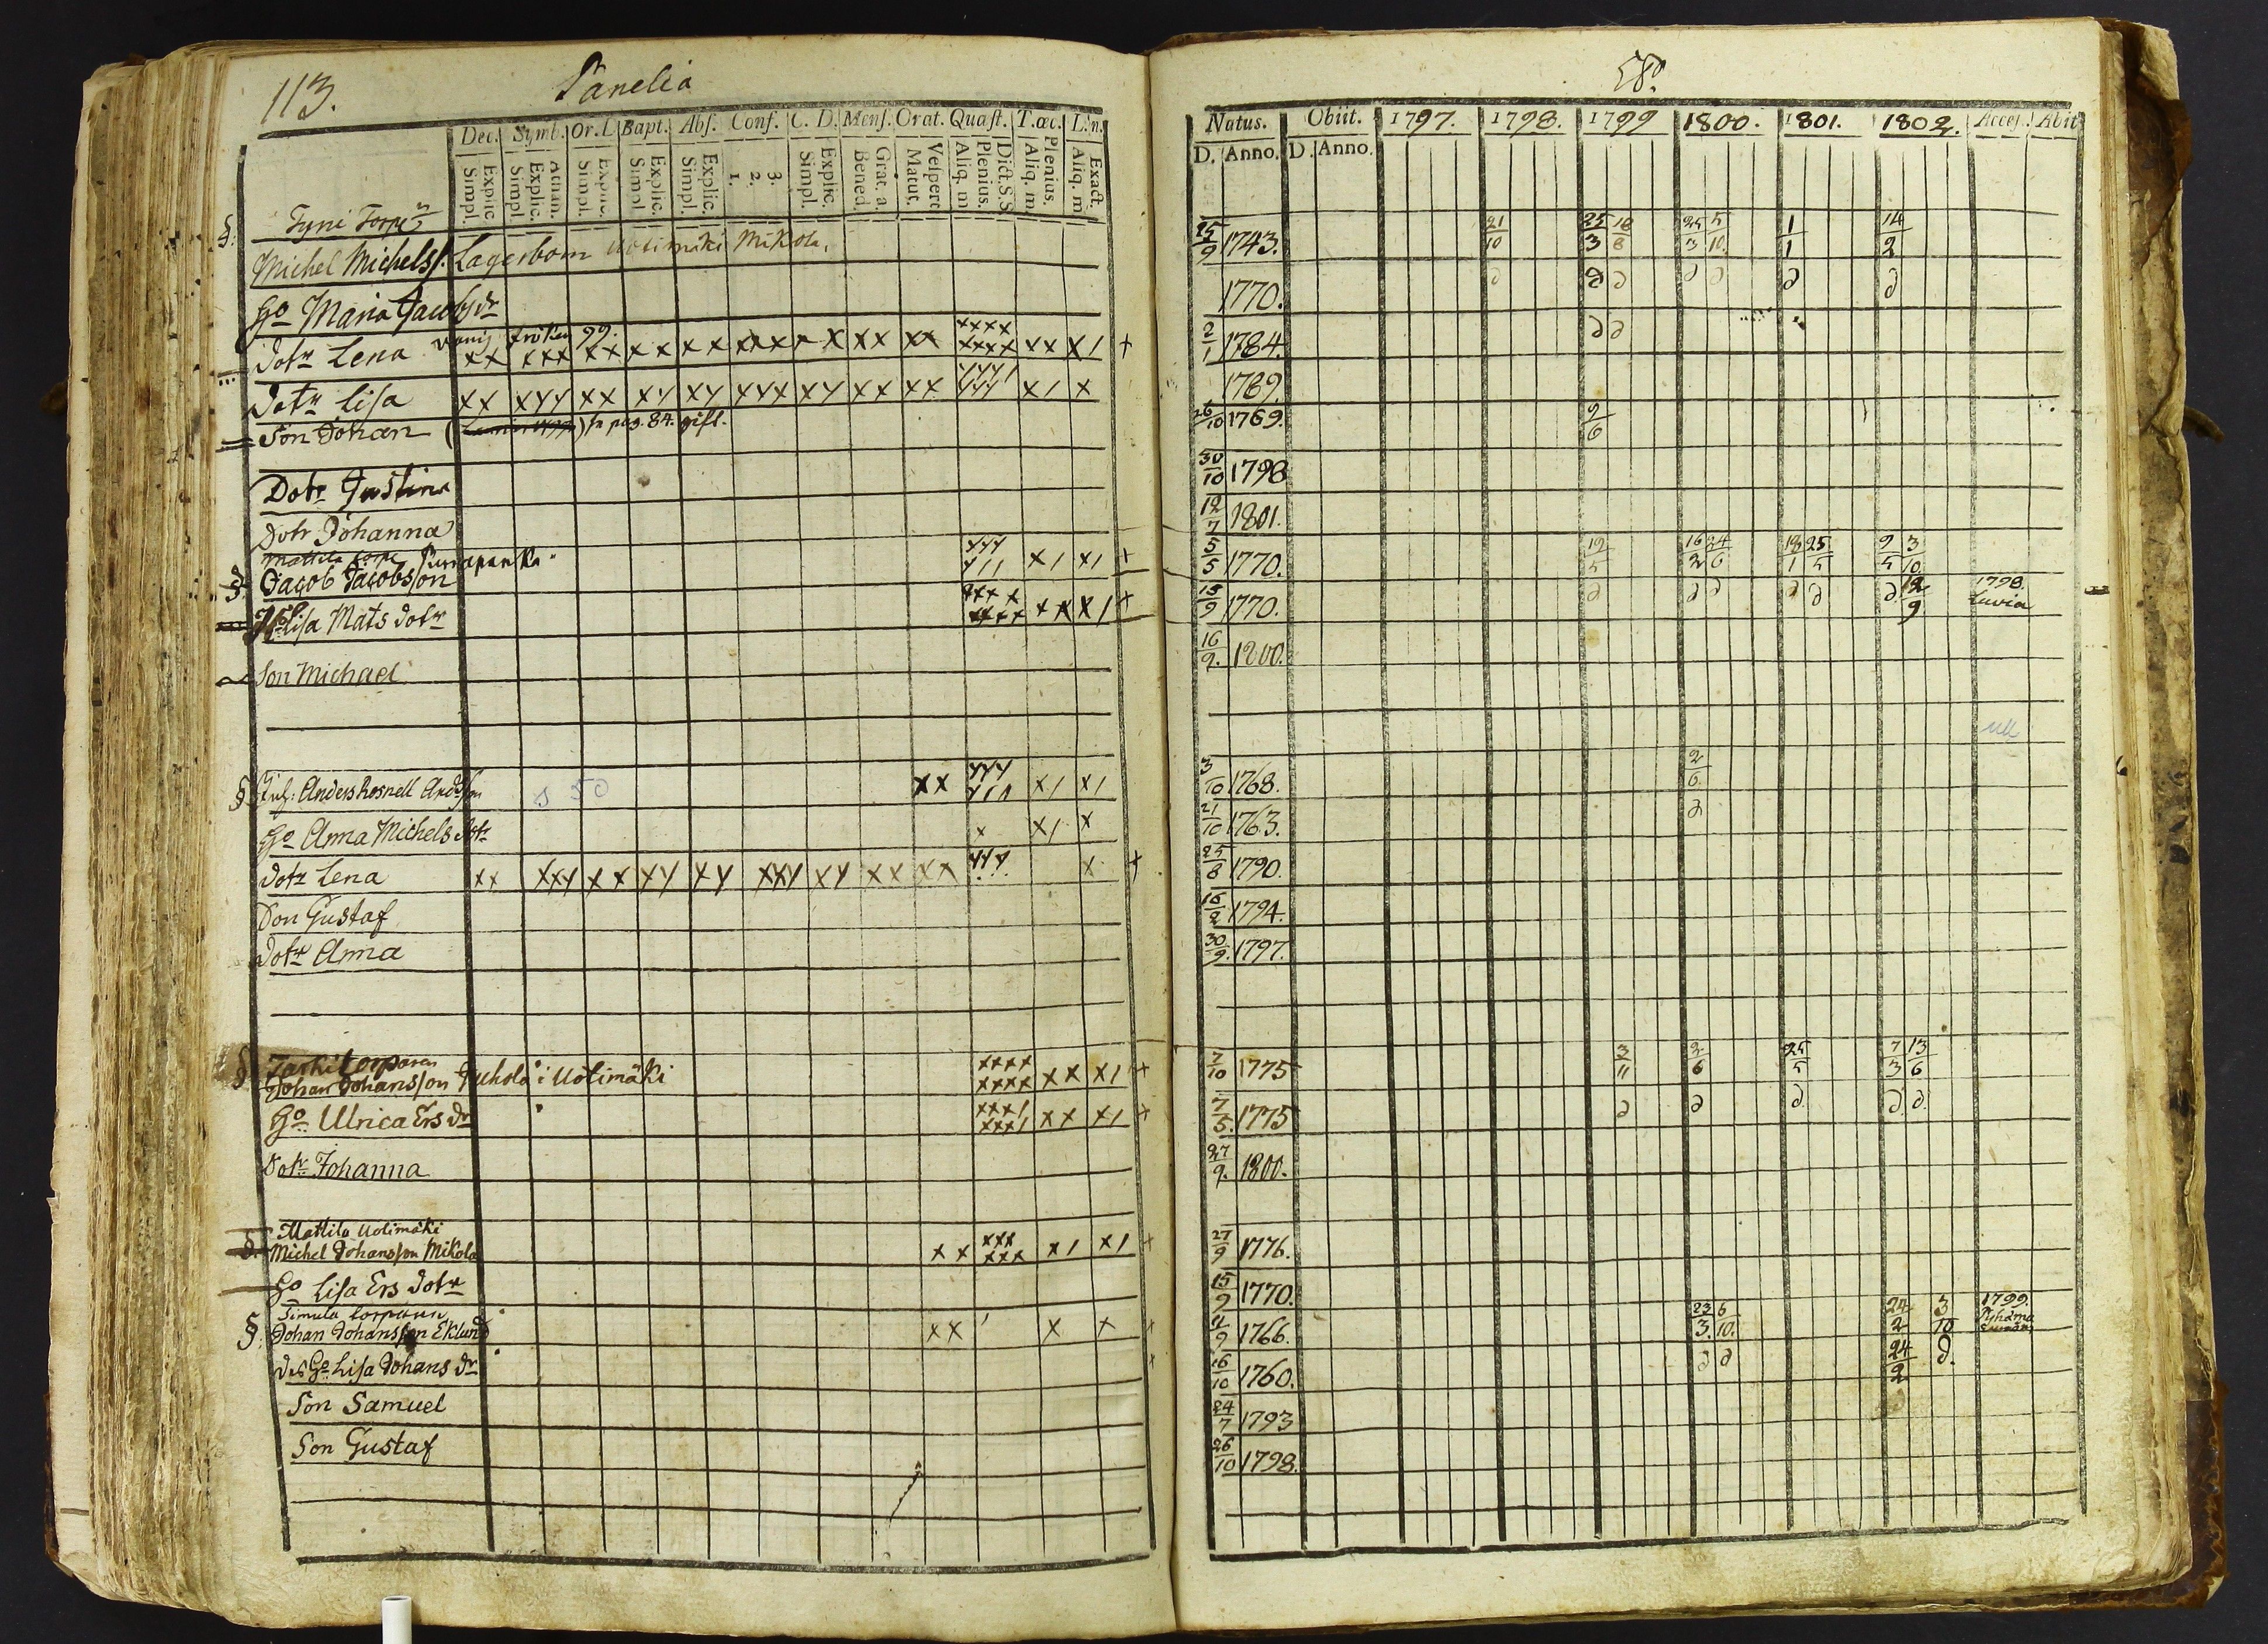 113. Panelia
Dec. Symb. Or. D. Bapt. Abs. Conf. C. D. Mens. Orat. Quæst. T. œc. L. n.
Explic. Simpl. Athan. Explic. Simpl. Explic. Simpl. Explic. Simpl. Explic. Simpl. 3. 2. 1. Explic. Simpl. Grat. a. Bened. Vespert. Matut. Dict. S.S. Plenius. Aliq. m Plenius. Aliq. m. Exact. Aliq. m
Tyni Torp
§. Michel Michels. Lagerbom Uotimäki Mikola.
Ho Maria Jacobs dr
Dotr Lena xx xxx xx xx xx xxx x x xx xx xxxx xxxx xx x/ +
Dotr Lisa xx xyy xx xy xy yyx xy xx xx x/ x
Son Johan fr pag. 84. gift.
Dotr Justina
Dotr Johanna
Mattila torp
§. Jacob Jacobsson x/ x/ +
Ho Lisa Mats dotr
Son Michael
§ Inh: Anders Rosnell Andson xx x/ x/
Ho Anna Michels dotr x x/ x
Dotr Lena xx xxy xx xy xy xxy xy xx xx yyy x +
Son Gustaf
Dotr Anna
Torparen
§ Johan Johansson Juhola i Uotimäki xxxx xxxx xx x/ +
Ho Ulrica Ers dr xxx/ xxx/ xx x/ +
Dotr Johanna
Mattila Uotimäki
§. Michel Johansson Mikola xx xxx xxx x/ x/ +
Ho Lisa Ers dotr
Simula torparen
§. Johan Johansson Eklund xx / x x +
Ho Lisa Johans dr
Son Samuel
Son Gustaf
58.
Natus. Obiit. 1797. 1798. 1799 1800. 1801. 1802. Acces. Abit
D. Anno. D. Anno.
25/9 1743. 21/10 25/3 18/8 25/3 5/10. 1/1 14/2
1770. d d d d d d d
2/1 1784. d d
1789.
26/10 1769. 9/6
30/10 1798
12/7 1801.
5/5 1770. 19/5 16/2 24/6 18/1 25/5 9/5 3/10
15/9 1770. d d d d d d 12/9 1798. Luvia
16/9. 1800.
3/10 1768. 2/6
21/10 1763. d
25/8 1790.
16/2 1794.
30/9. 1797.
7/10 1775 3/11 2/6 25/5 7/3 13/6
7/5. 1775 d d d d. d.
27/9. 1800.
27/9 1776.
15/9 1770.
11/9 1766. 23/3 6/10. 24/2 3/10 1799.
16/10 1760. d d 24/2 d.
24/7 1793
26/10 1798.